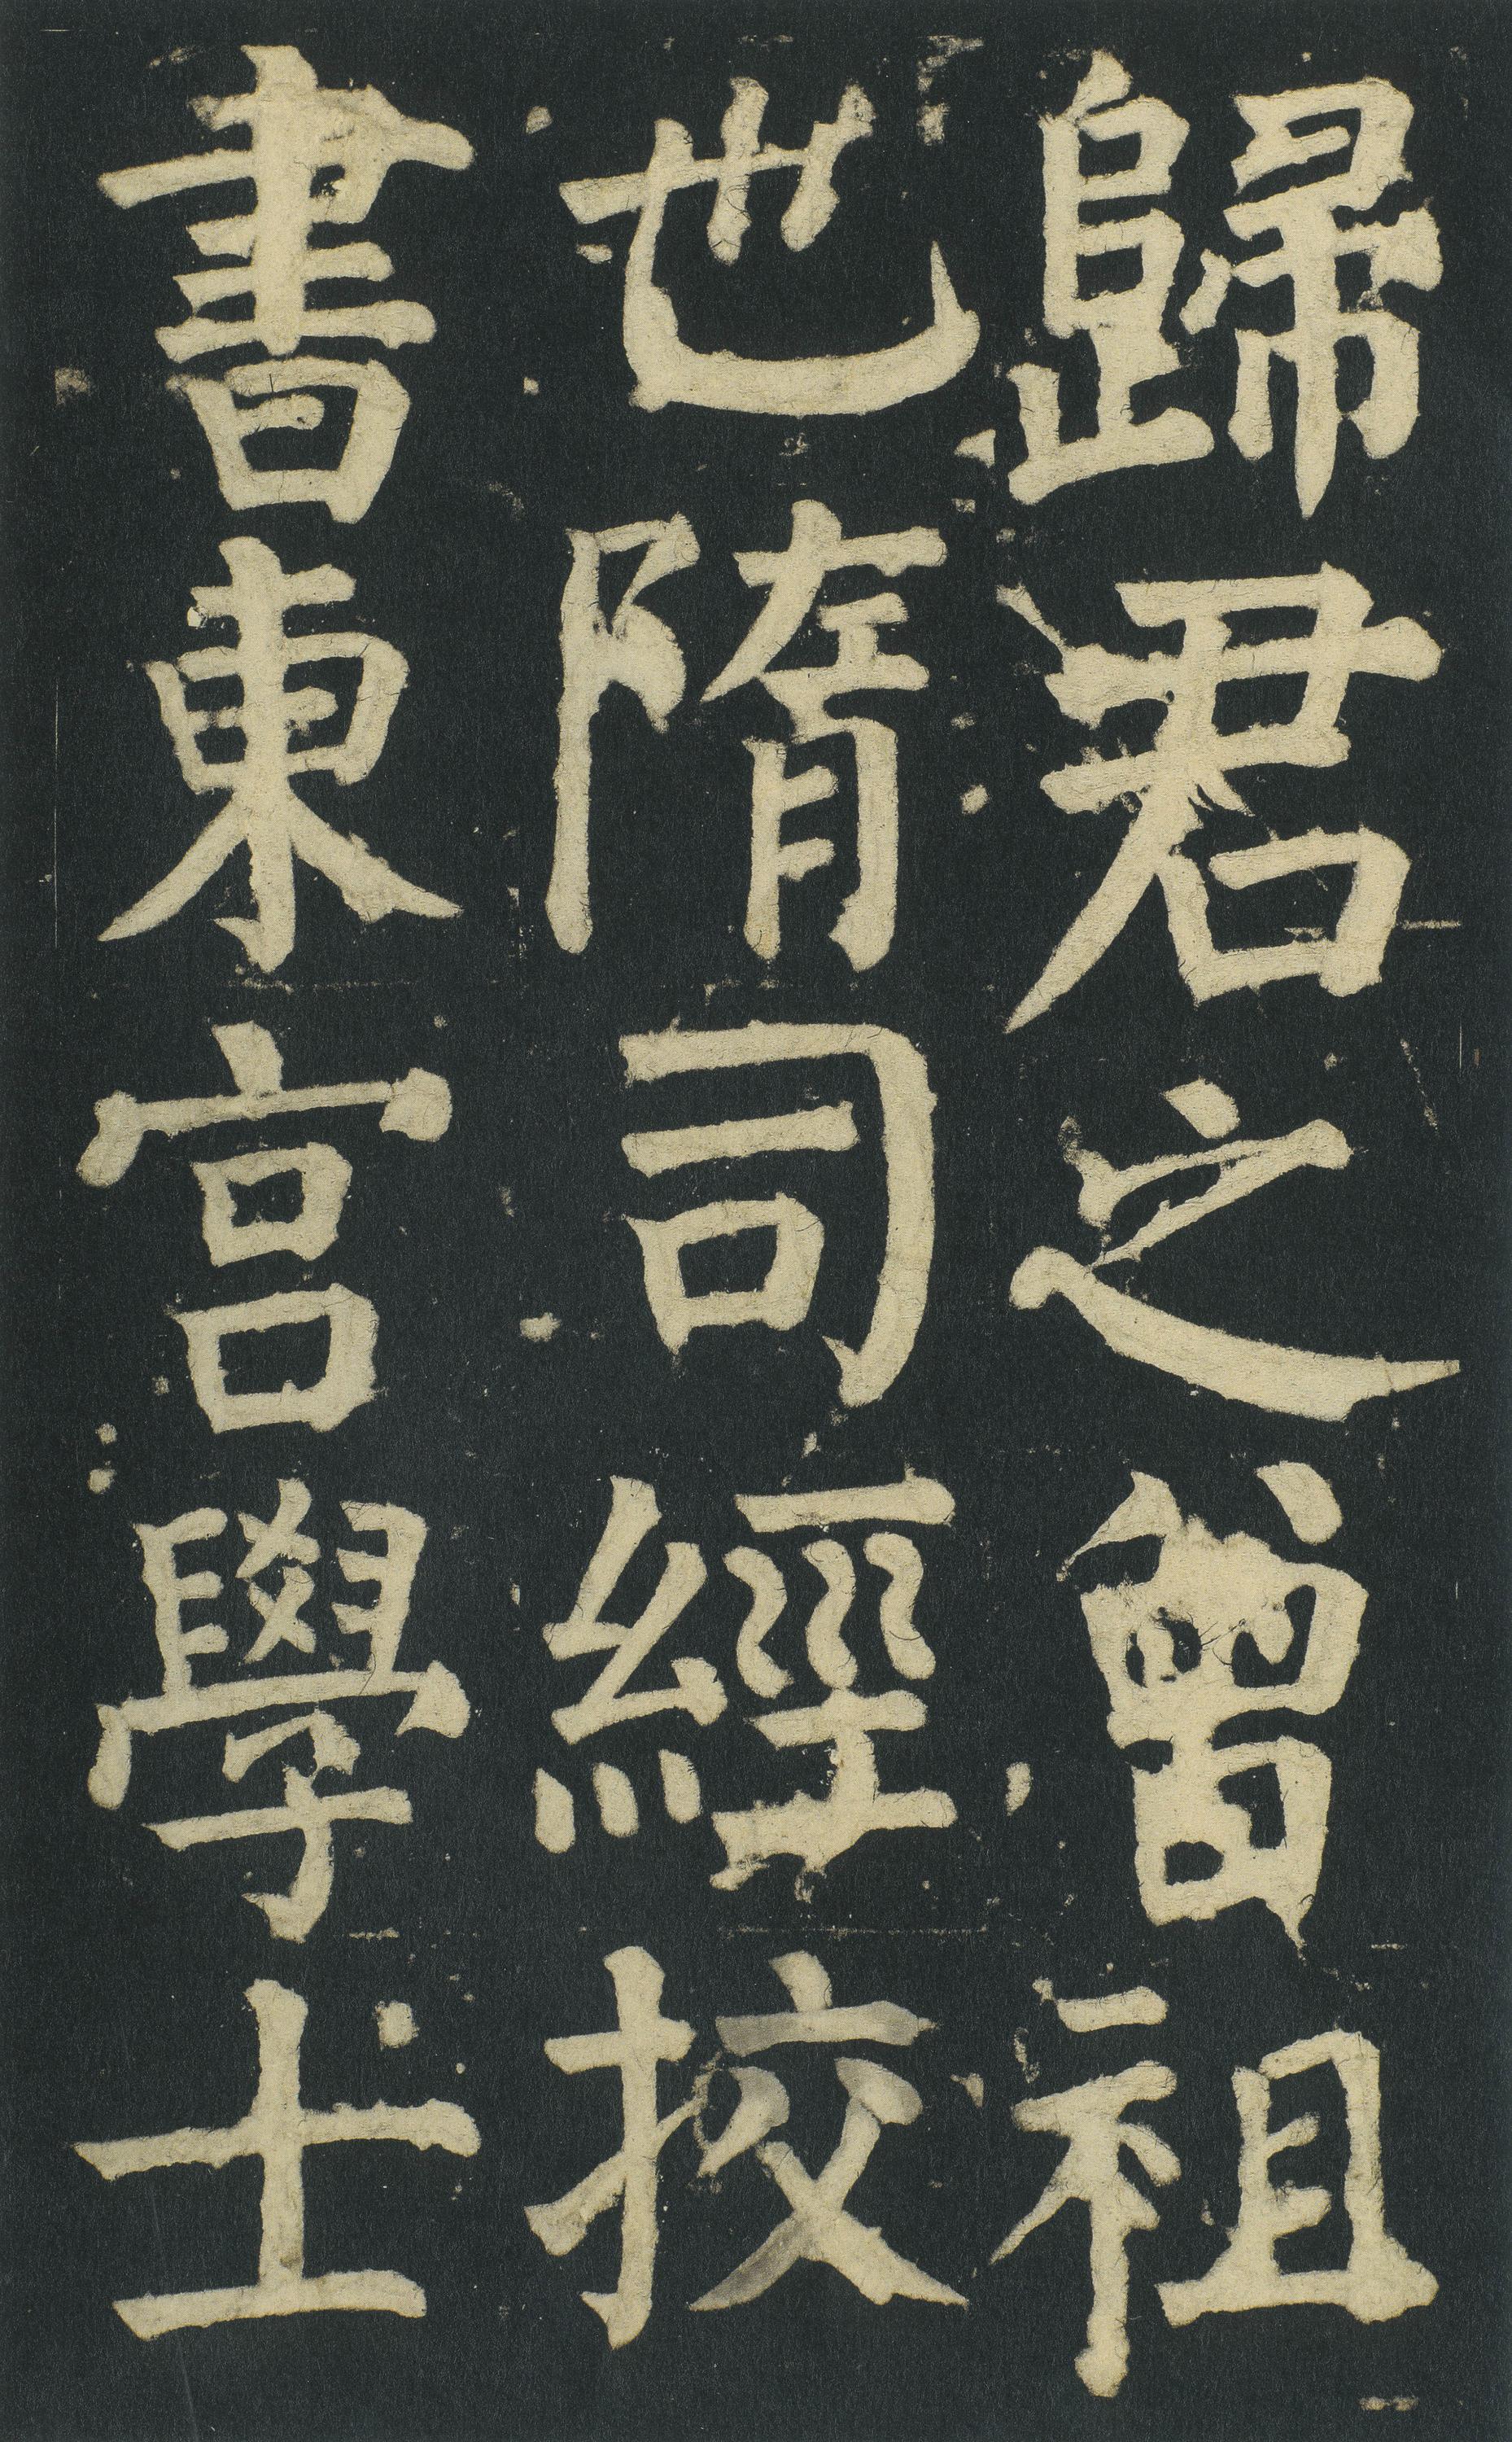 歸君之曾祖
也隋司經挍
書東宮學士